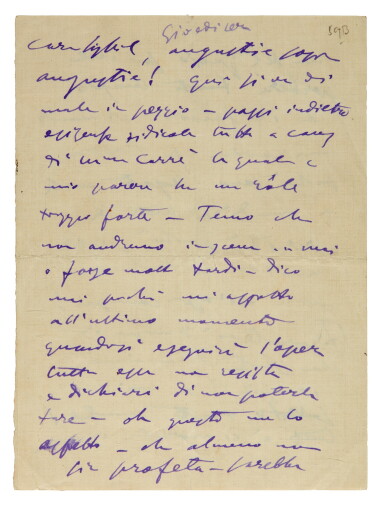 Giovedi sera
193
Cara Sybil, angustie sopra
angustie! qui si va di
male in peggio – passi indietro
esigenze ridicole tutto a causa
di Mme Carré la quale a
mio parere ha un rôle
troppo forte – Temo che
non andremo in scena mai
o forse molto tardi – dico
mai perchè mi aspetto
all'ultimo momento
quando si eseguirà l'opera
tutta essa non resista
e dichiari di non poterla
fare – oh questo me lo
aspetto – oh almeno non
sia profeta – sarebbe